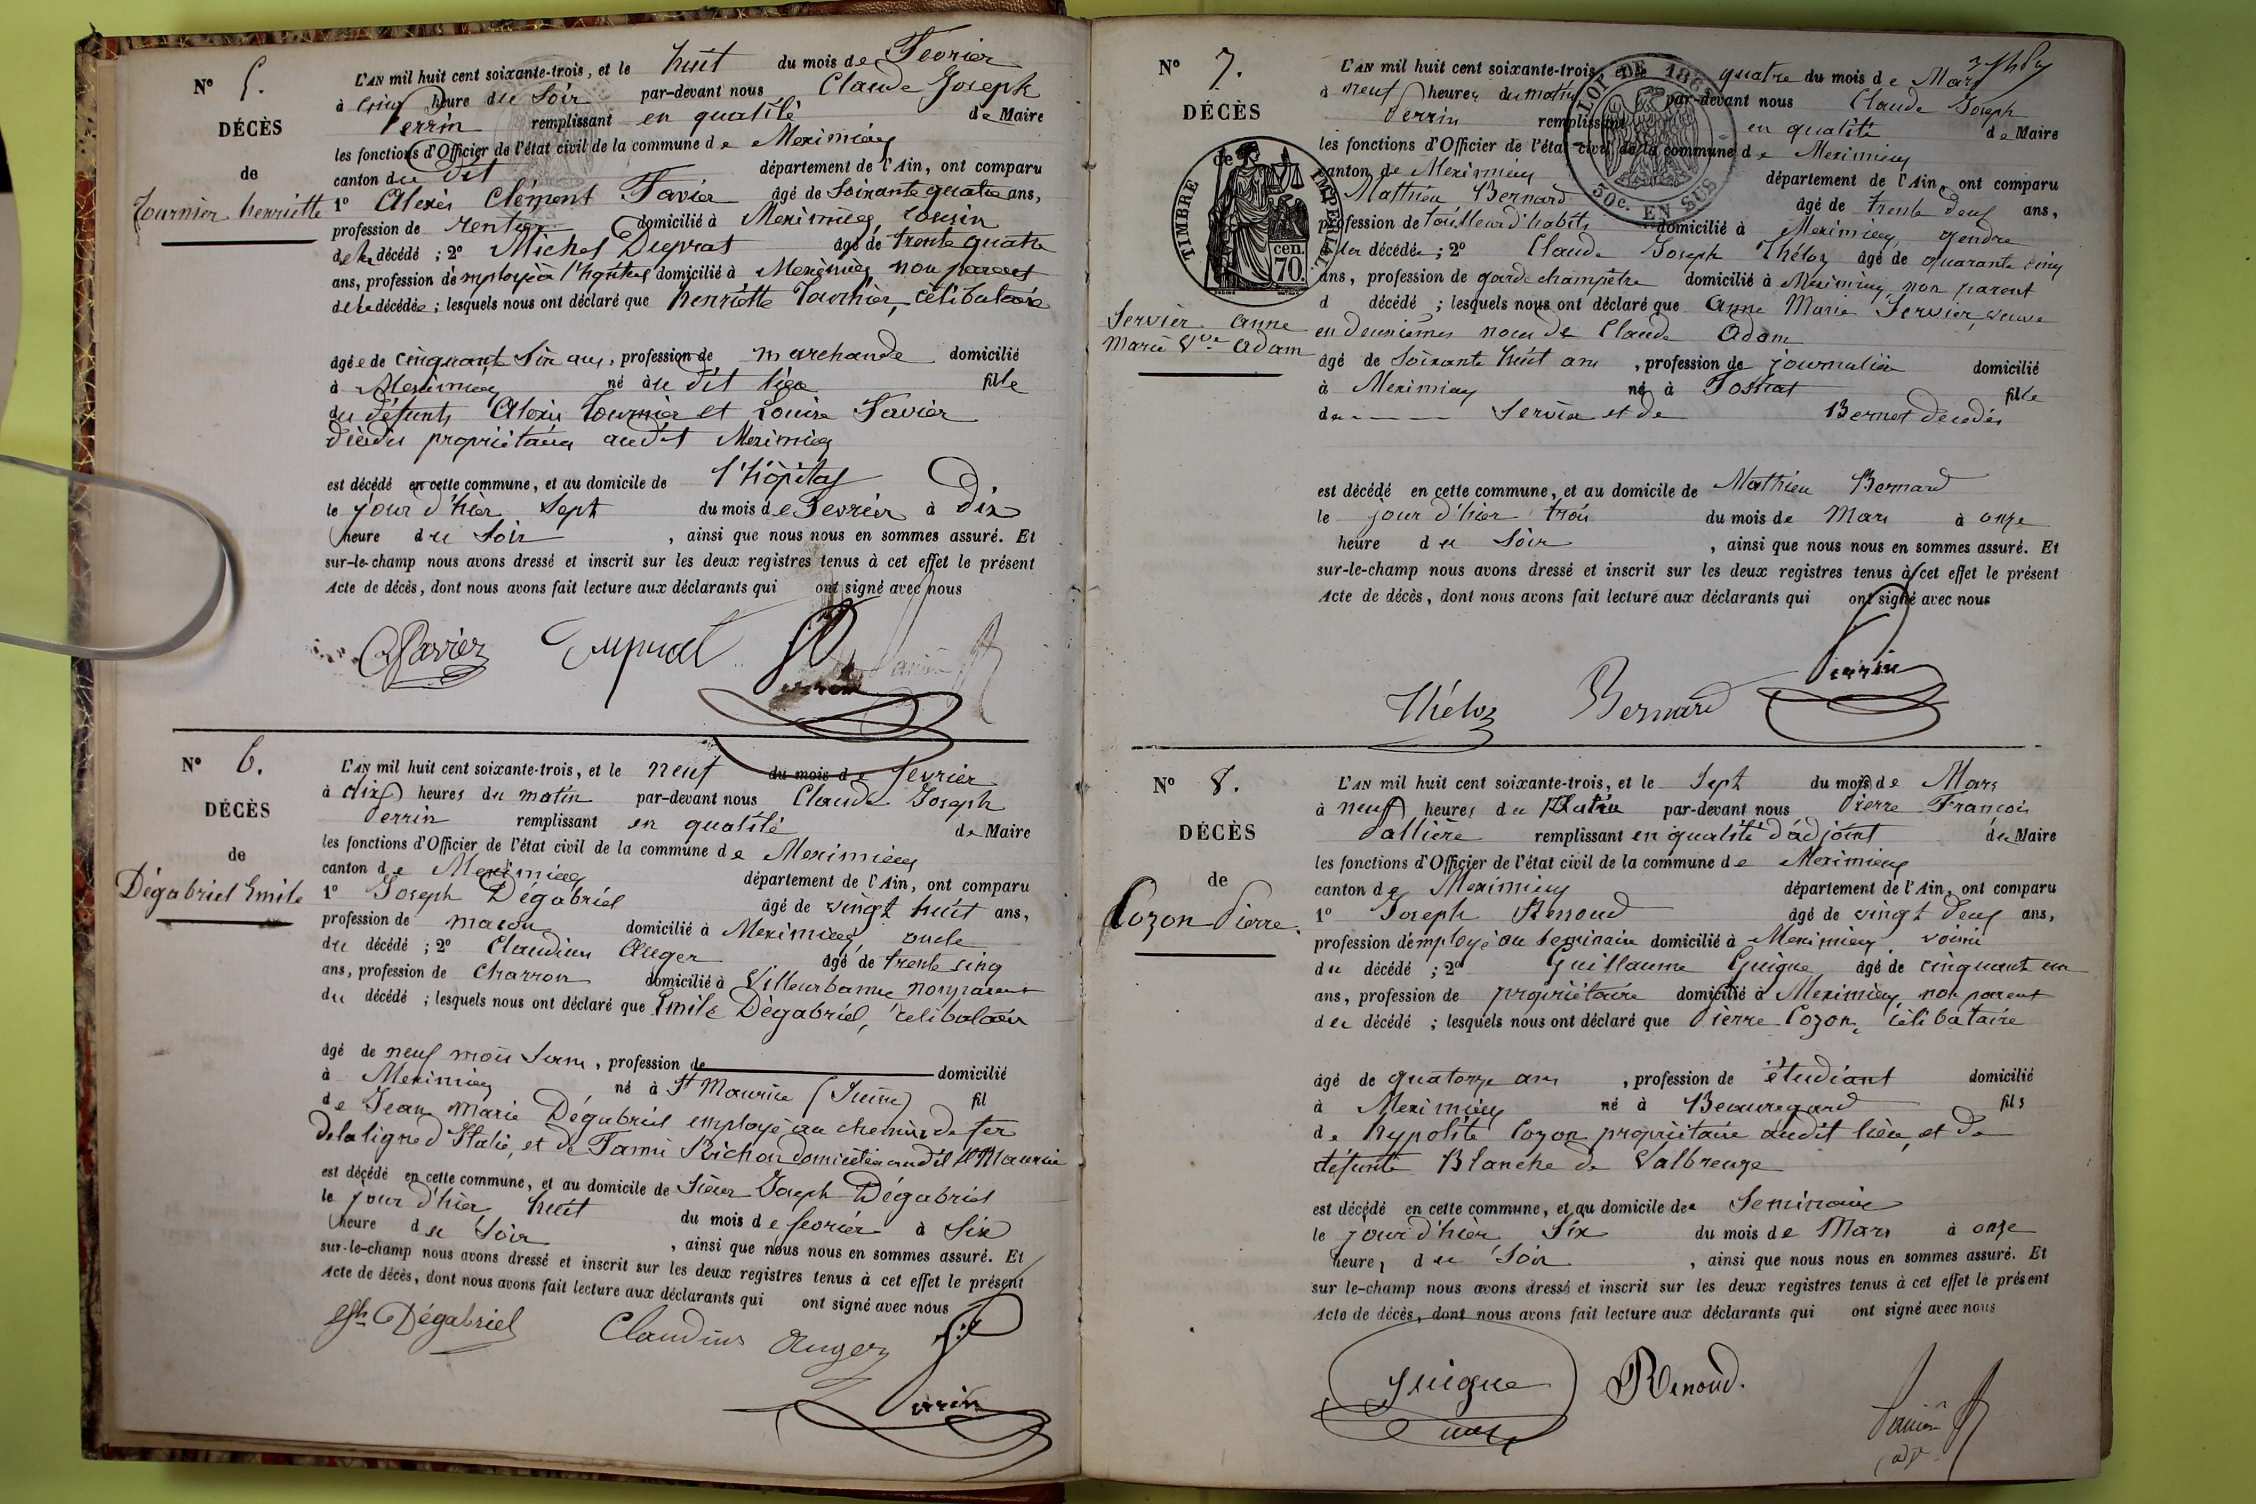 N° 5.
DÉCÈS
de
Tournier henriette
L'AN mil huit cent soixante-trois, et le huit du mois de Fevrier
à cinq heure du Soir par-devant nous Claude Joseph
Perrin remplissant en qualité de Maire
les fonctions d'Officier de l'état civil de la commune de Meximieux
canton du dit département de l'Ain, ont comparu
1° Alexis Clément Favier âgé de Soixante quatre ans,
profession de rentier domicilié à Meximieux cousin
de la décédé ; 2° Michel Dupras âgé de trente quatre
ans, profession d'employé à l'hôpital domicilié à Meximieux non parent
de la décédée ; lesquels nous ont déclaré que henriette Tournier, célibataire
âgée de cinquante Six ans, profession de marchande domicilié
à Meximieux né au dit lieu fille
du défunts Alexis Tournier et Louise Favier
propriétaires audit Meximieux
est décédé en cette commune, et au domicile de l'hôpital
le jour d'hier Sept du mois de Fevrier à Dix
heure du Soir , ainsi que nous nous en sommes assuré. Et
sur-le-champ nous avons dressé et inscrit sur les deux registres tenus à cet effet le présent
Acte de décès, dont nous avons fait lecture aux déclarants qui ont signé avec nous
Favier
N° 6.
DÉCÈS
de
Dégabriel Emile
L'AN mil huit cent soixante-trois, et le neuf du mois de fevrier
à dix heures du matin par-devant nous Claude Joseph
Perrin remplissant en qualité de Maire
les fonctions d'Officier de l'état civil de la commune de Meximieux
canton de Meximieux département de l'Ain, ont comparu
1° Joseph Dégabriel âgé de vingt huit ans,
profession de maçon domicilié à Meximieux oncle
du décédé ; 2° Claudius Auger âgé de trente cinq
ans, profession de Charron domicilié à Villeurbanne non parent
du décédé ; lesquels nous ont déclaré que Emile Dégabriel, célibataire
âgé de neuf mois , profession de domicilié
à Meximieux né à St Maurice (Suisse) fil
de Jean Marie Dégabriel employé au chemin de fer
de la ligne d'Italie, et de Fanni Richon domiciliés audit St Maurice
est décédé en cette commune, et au domicile de Sieur Joseph Dégabriel
le jour d'hier huit du mois de fevrier à Six
heure du Soir , ainsi que nous nous en sommes assuré. Et
sur-le-champ nous avons dressé et inscrit sur les deux registres tenus à cet effet le présent
Acte de décès, dont nous avons fait lecture aux déclarants qui ont signé avec nous
Jph Dégabriel Claudius Auger
Perrin
N° 7.
DÉCÈS
de
TIMBRE IMPERIAL
70 cen.
LOI DE 186
50c. EN SUS
Servier anne
marie Vve adam
L'AN mil huit cent soixante-trois, et le quatre du mois de Mars
à neuf heures du matin par-devant nous Claude Joseph
Perrin remplissant en qualité de Maire
les fonctions d'Officier de l'état civil de la commune de Meximieux
canton de Meximieux département de l'Ain, ont comparu
Mathieu Bernard âgé de trente deux ans,
profession de tailleur d'habits domicilié à Meximieux gendre
de la décédée ; 2° Claude Joseph Théloz âgé de quarante cinq
ans, profession de garde champêtre domicilié à Meximieux non parent
d décédé ; lesquels nous ont déclaré que anne Marie Servier, veuve
en deuxièmes noces de Claude Adam
âgé de Soixante huit ans , profession de journalière domicilié
à Meximieux né à Tossiat fille
de Servier et de Bernet décédés
est décédé en cette commune, et au domicile de Mathieu Bernard
le jour d'hier trois du mois de Mars à onze
heure du Soir , ainsi que nous nous en sommes assuré. Et
sur-le-champ nous avons dressé et inscrit sur les deux registres tenus à cet effet le présent
Acte de décès, dont nous avons fait lecture aux déclarants qui ont signé avec nous
Théloz Bernard Perrin
N° 8.
DÉCÈS
de
Cozon Pierre.
L'AN mil huit cent soixante-trois, et le Sept du mois de Mars
à neuf heures du Matin par-devant nous Pierre François
Pallière remplissant en qualité d'adjoint du Maire
les fonctions d'Officier de l'état civil de la commune de Meximieux
canton de Meximieux département de l'Ain, ont comparu
1° Joseph Renoud âgé de vingt deux ans,
profession d'employé au Seminaire domicilié à Meximieux voisin
du décédé ; 2° Guillaume Guigue âgé de cinquante un
ans, profession de propriétaire domicilié à Meximieux non parent
du décédé ; lesquels nous ont déclaré que Pierre Cozon, célibataire
âgé de quatorze ans , profession de étudiant domicilié
à Meximieux né à Beauregard fils
de hypolite Cozon propriétaire audit lieu, et de
défunte Blanche de Valbreuze
est décédé en cette commune, et au domicile du Seminaire
le jour d'hier Six du mois de Mars à onze
heure, du Soir , ainsi que nous nous en sommes assuré. Et
sur le-champ nous avons dressé et inscrit sur les deux registres tenus à cet effet le présent
Acte de décès, dont nous avons fait lecture aux déclarants qui ont signé avec nous
Guigue Renoud.